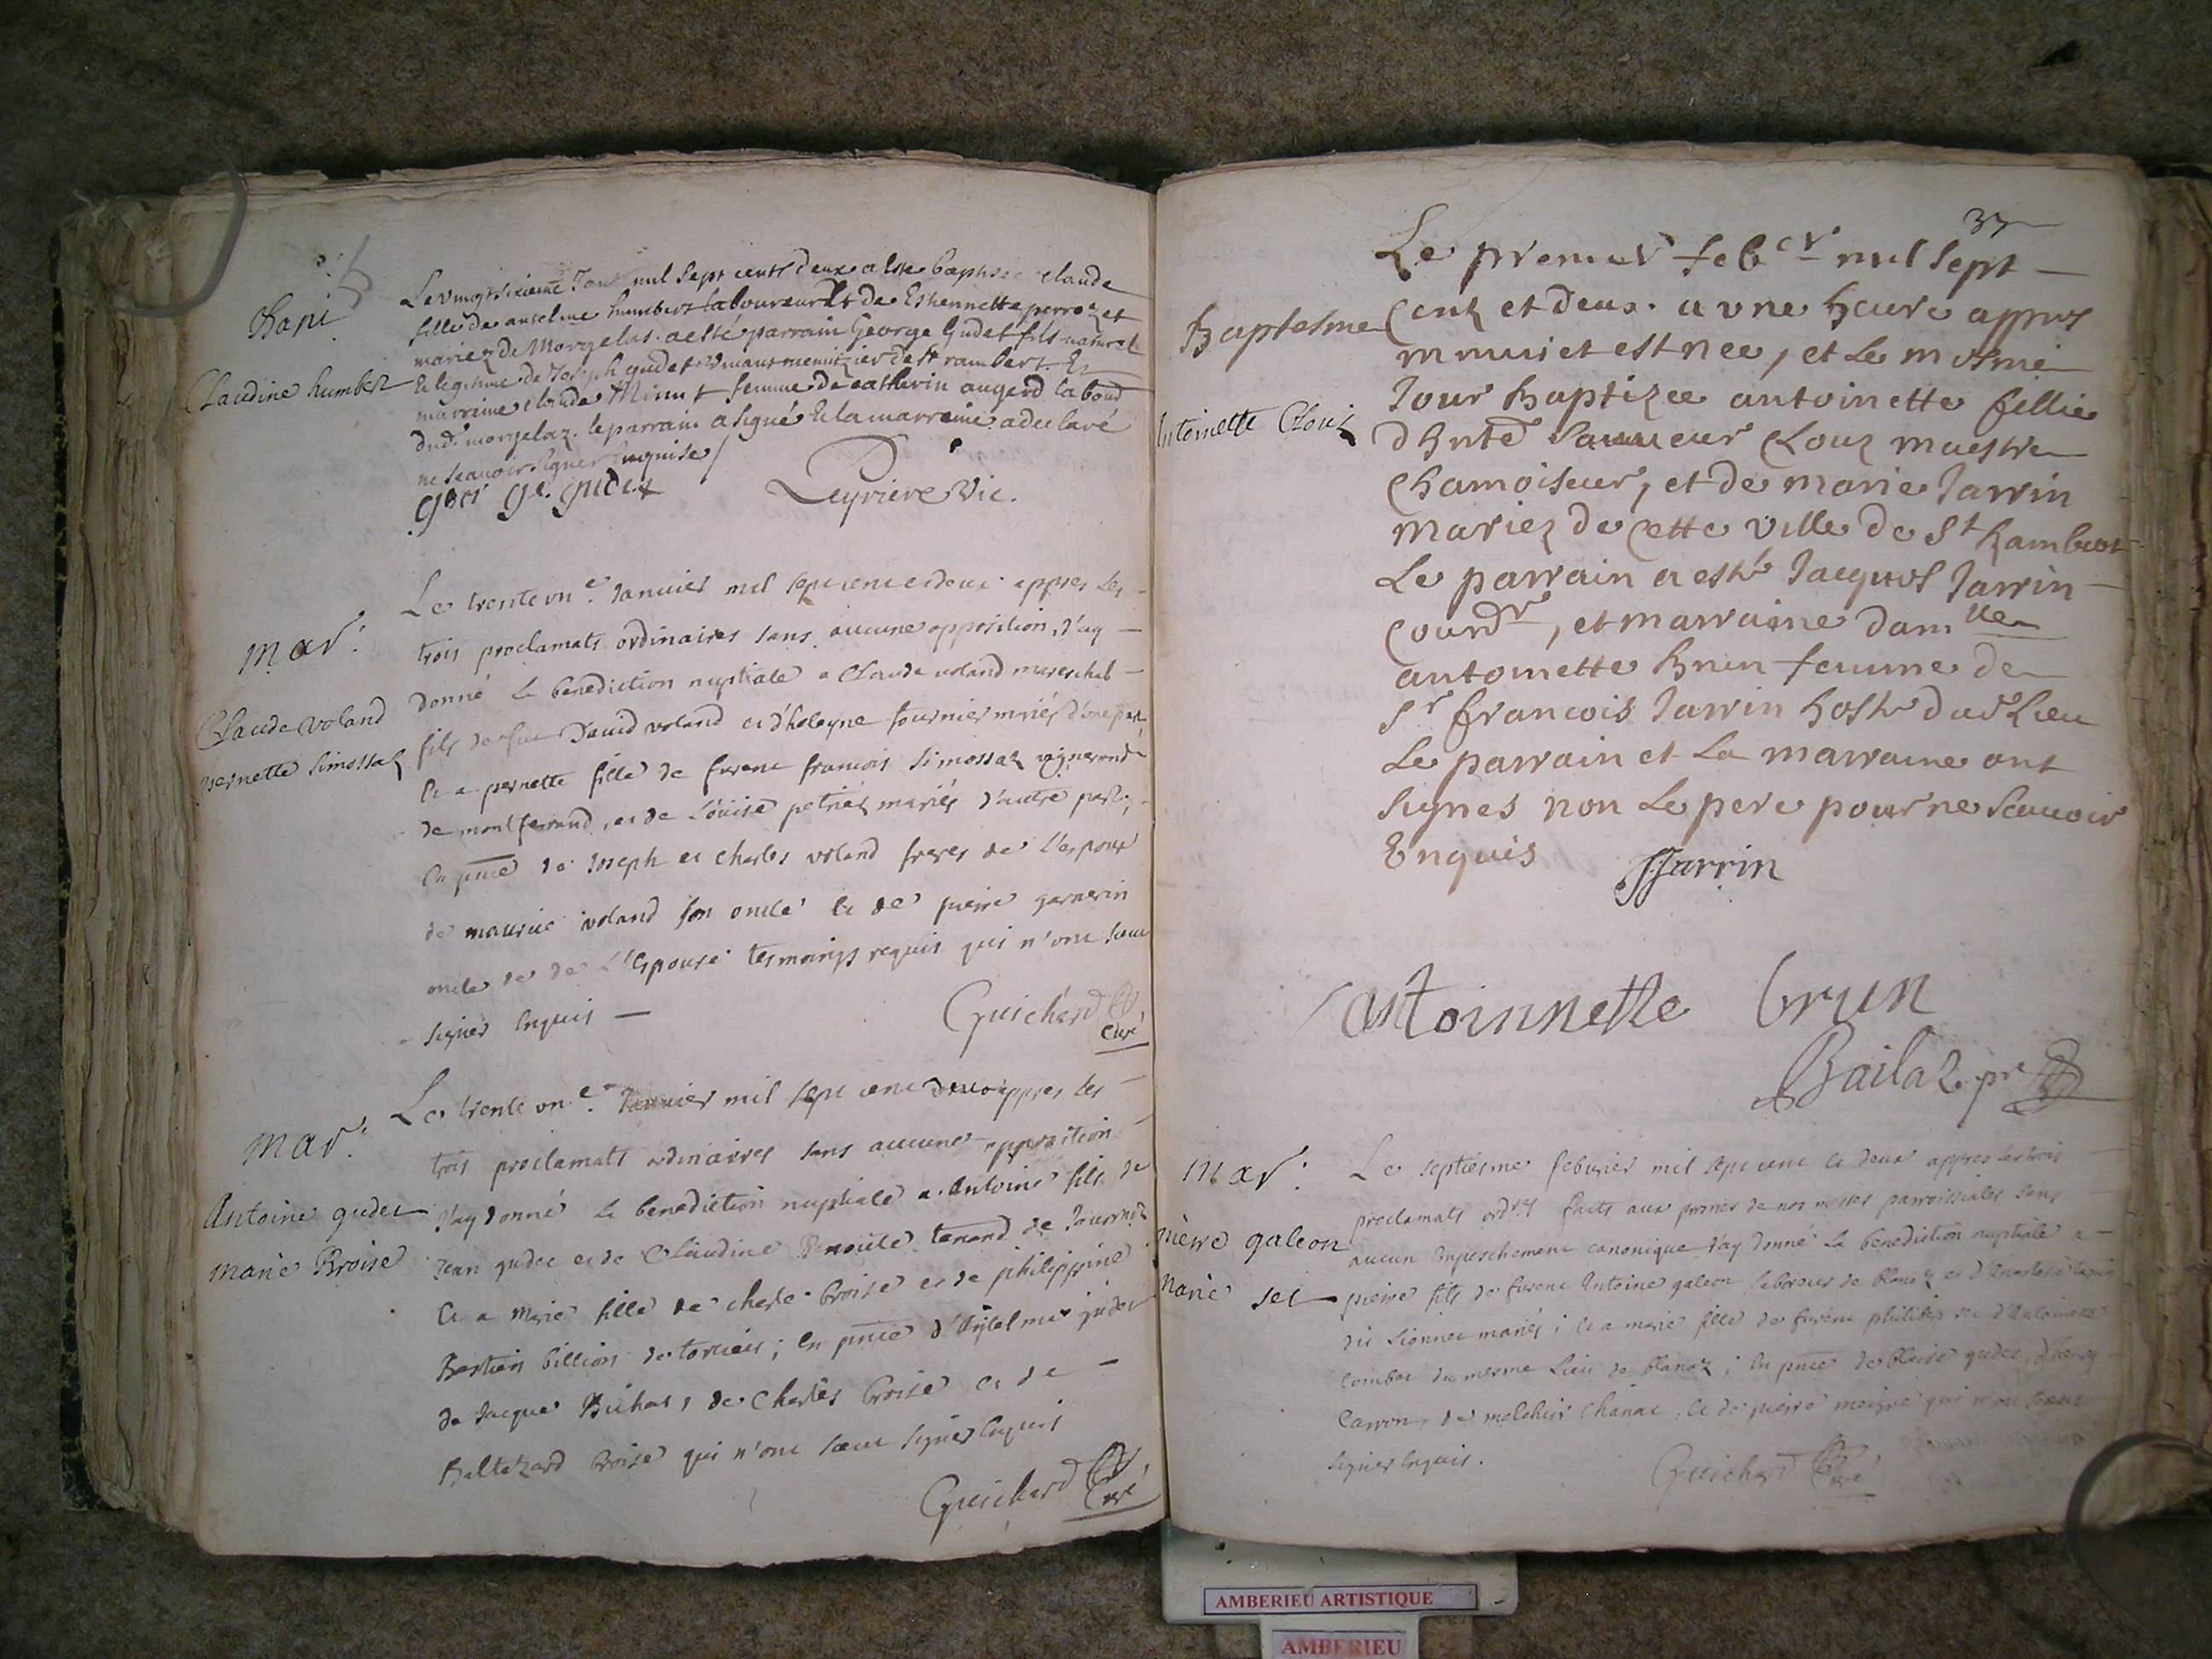 Bapt.
Claudine humbert
Le vingt sixieme Janv mil sept cents deux a este baptisee claude
fille de anselme humbert laboureur et de Estiennette perrozet
mariez de Morgelas. a esté parrain George Gudet fils naturel
Et legitime de Joseph gudet vivant menuizier de St rambert. Et
marraine claude Minut femme de catherin augerd labour
dud. morgelaz. le parrain a signé Et la marraine a declaré
ne scavoir signer Enquise /
ge. gudet
Leyriere Vic.
mar:
Claude voland
pernette simossaz
Le trente vn.e Janvier mil sept cent et deux appres les
trois proclamats ordinaires sans aucune opposition, J'ay
donné la benediction nuptiale a Claude voland mareschal
fils de feu David voland et d'heleyne fournier mariés d'une part
Et a pernette fille de furent francois simossaz vigneron
de montferrand, et de Louise petriez mariés d'autre part,
En pnce de Joseph et charles voland freres de l'espoux
de maurice voland son oncle Et de pierre garnerin
oncle de de L'espouse tesmoings requis qui n'ont sceu
signer Enquis
Guichard
Curé
mar:
Antoine gudet
Marie Broise
Le trente vn.e Janvier mil sept cent deux appres les
trois proclamats ordinaires sans aucune opposition
J'ay donné la benediction nuptiale a Antoine fils de
Jean gudet et de Claudine Benoite tenand de
Et a Marie fille de charle Broise et de philippine
Bastien billion de torcieu; En pnce d'Anselme gudet
de Jacque Bichat, de Charles Broise et de
Baltazard Broise qui n'ont sceu signer Enquis
Guichard
Curé
37
Baptesme
Antoinette Clouz
Le premier feb.er mil sept
Centz et deux. a vne heure appres
minuict est née, et Le mesme
Jour Baptizee antoinette fillie
d'hnte Sauueur Clouz maestre
Chamoiseur, et de marie Jarrin
mariez de Cette ville de St Rambert
Le parrain a esté Jacques Jarrin
Courdr, et marraine damlle
antoinette Brun femme de
Sr francois Jarrin hoste dud Lieu
Le parrain et La marraine ont
signes non Le pere pour ne Scauoir
Enquis
JJarrin
antoinnette brun
Bailaz pr
Mar:
pierre galeon
Marie sec
Le septiesme feburier mil sept cent et deux appres les trois
proclamats ord.res faits aux prosnes de nos messes parroissiales sans
aucun Empeschement canonique J'ay donné La benediction nuptiale a
pierre fils de furent Antoine galeon laboreur de blanaz et d'
dit Lionnet mariés; Et a marie fille de furent philibert sec d'Antoinette
combet du mesme Lieu de blanaz; En pnce de blaise gudet, d'henry
Carron, de melchior chanal, Et de pierre qui n'ont sceu
signer Enquis.
Guichard
Curé
AMBERIEU ARTISTIQUE
AMBERIEU